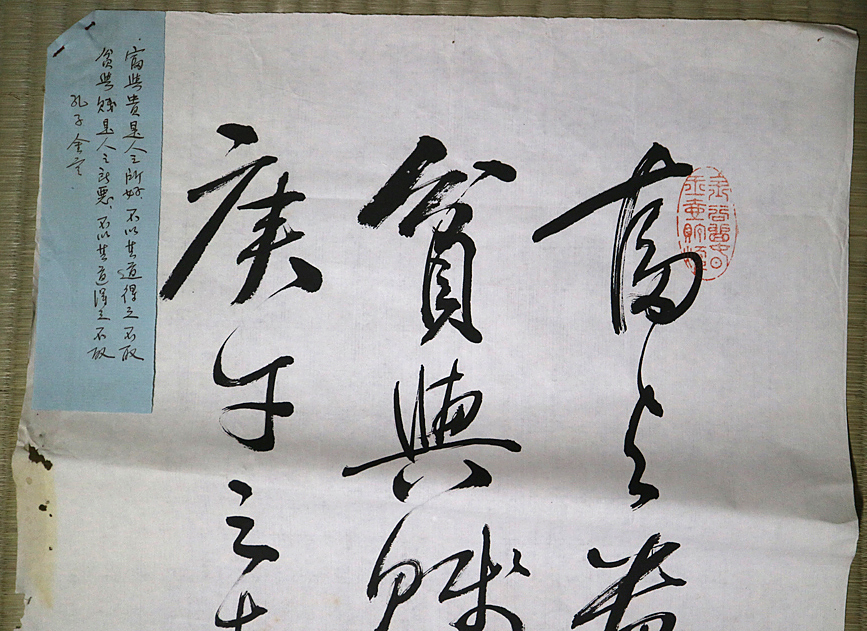 富与貴
貧與賤
庚午之
富與貴是人之所好不以其道得之不取
貧與賤是人之所惡不以其道得之不取
孔子金言